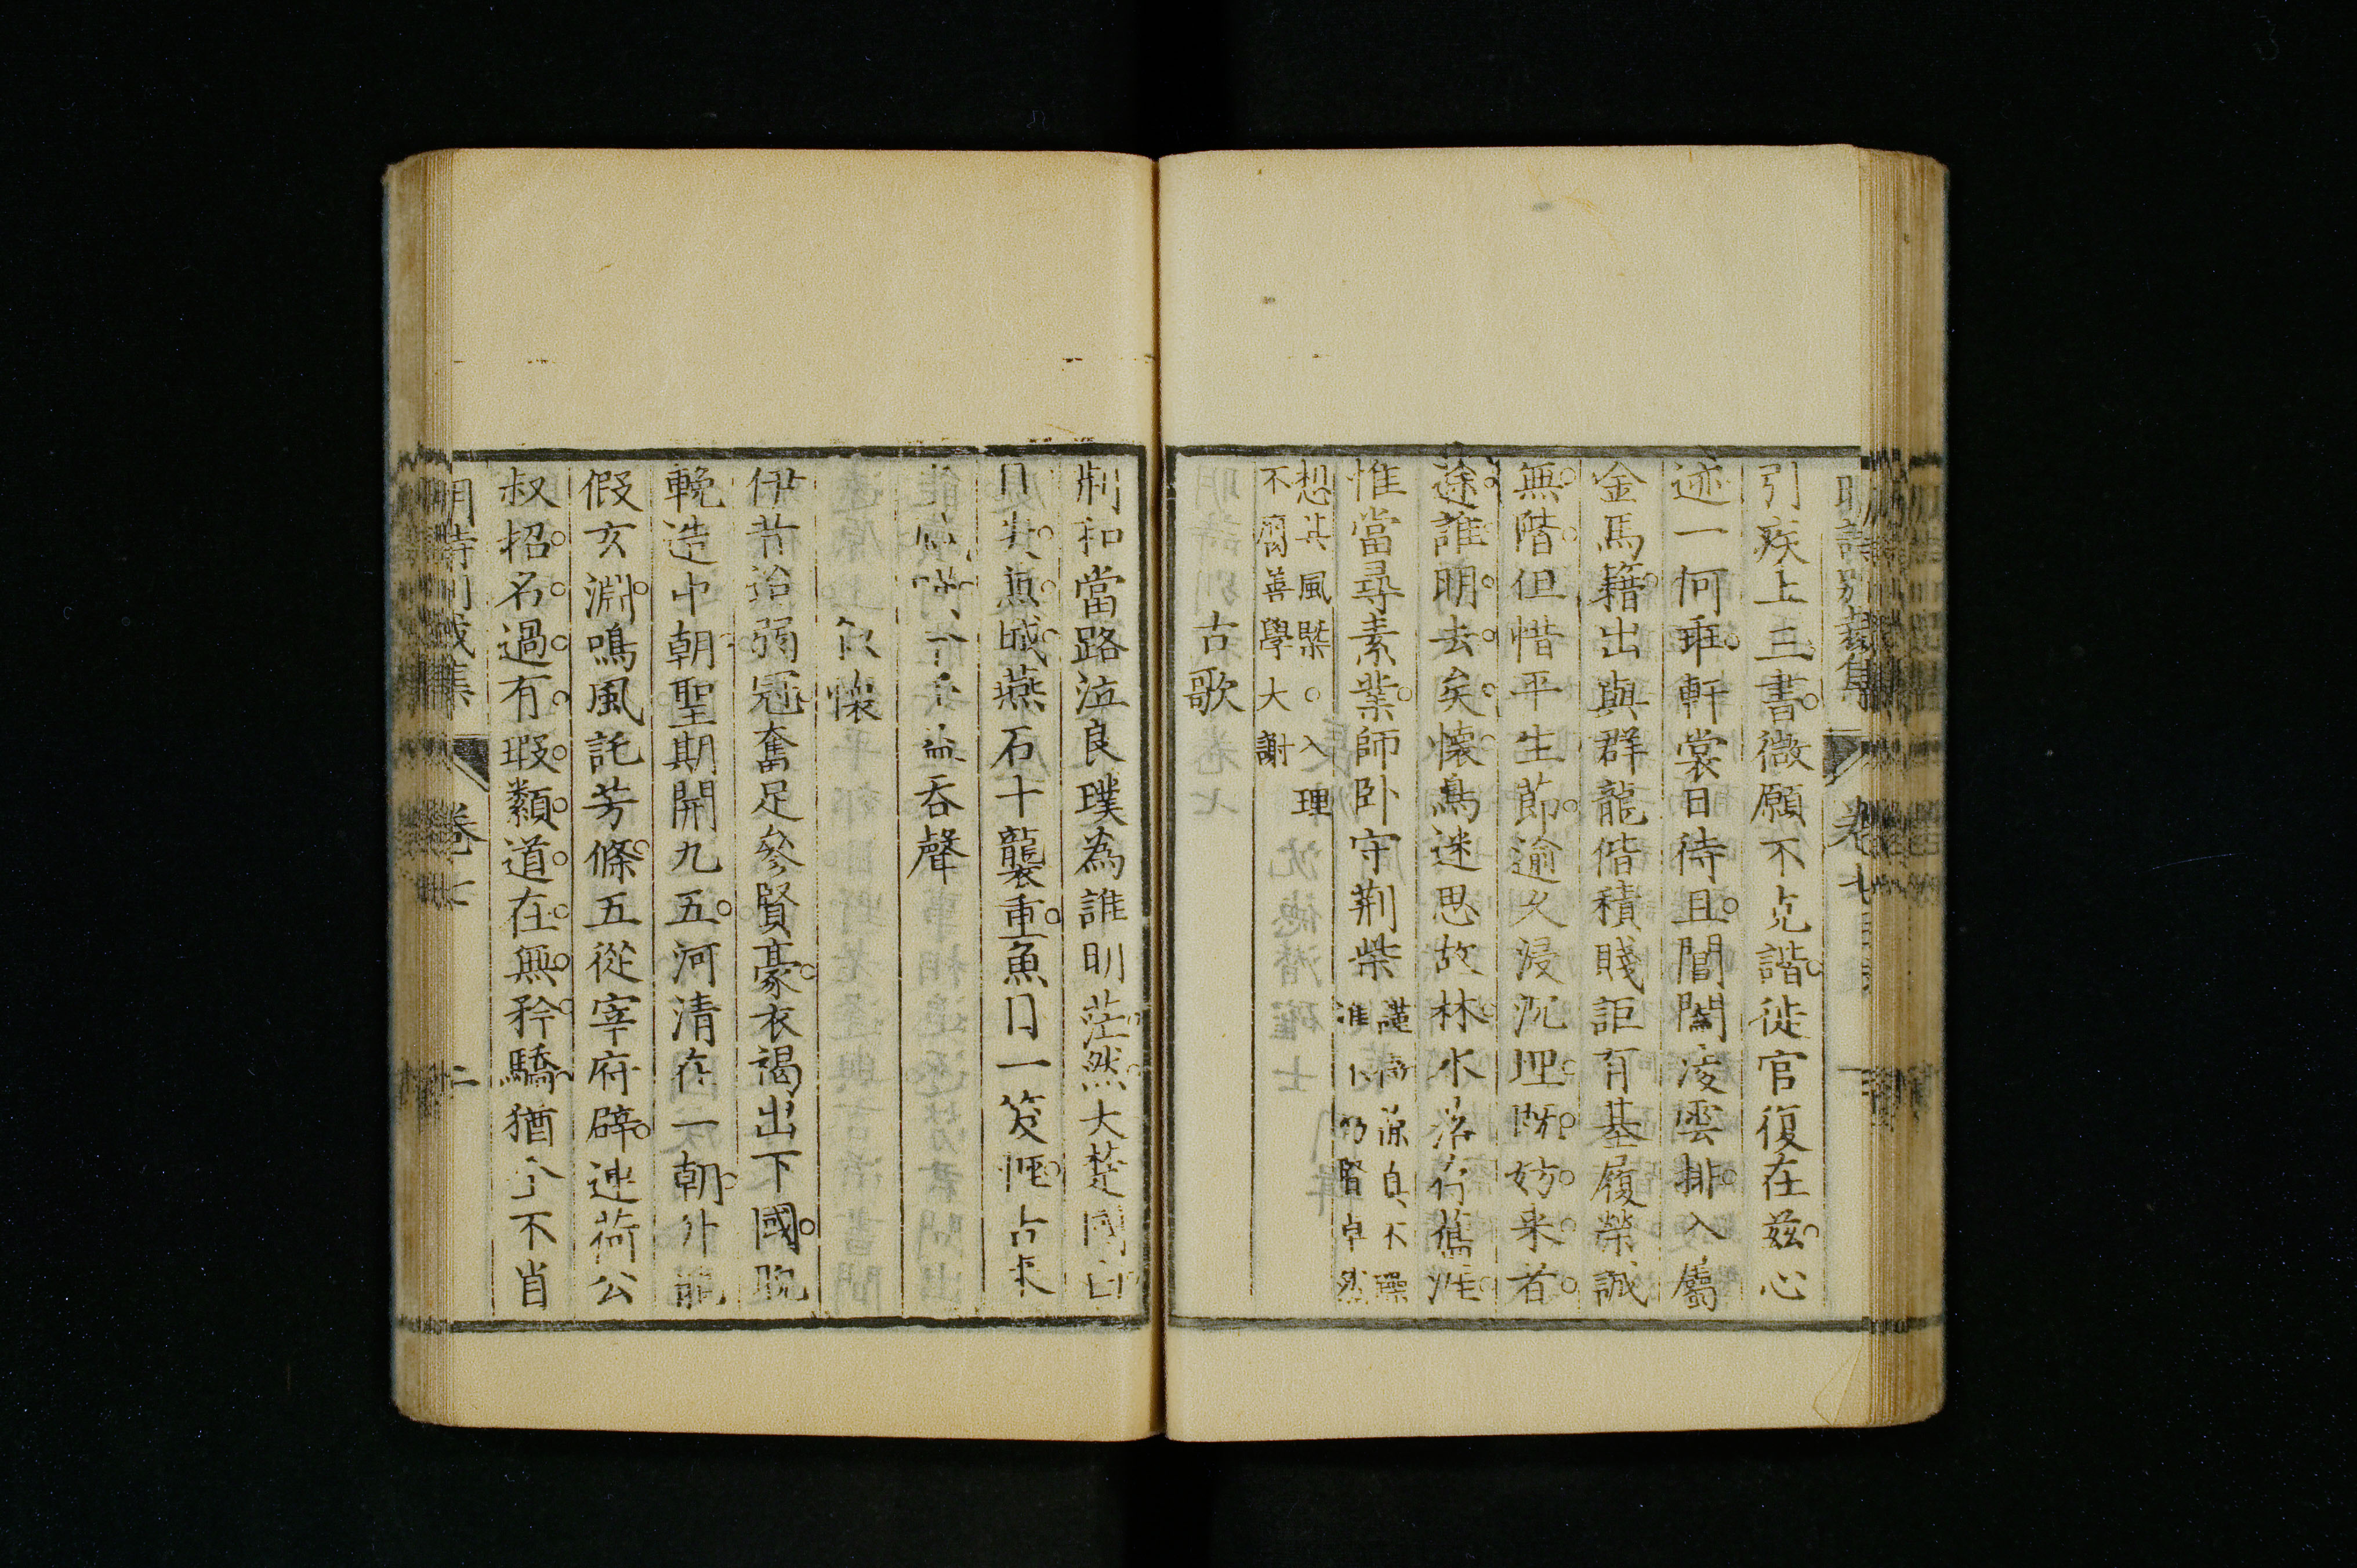 明詩別裁集 卷七
引疾上三書微願不克諧徙官復在茲心
迹一何乖軒裳日待旦閶闔凌雲排入屬
金馬籍出與群龍偕積賤詎有基履榮誠
無階但惜平生節逾久浸沉埋既妨來者
途誰明去矣懷鳥迷思故林水落存舊涯
惟當尋素業歸卧守荊柴
謹 不躁
淮 乃腎卓然
想其風槩。入理
不腐善學大謝
古歌
荊和當路泣良璞為誰明茫然大楚國白
日 城燕石十襲重魚目一笈 古來
吞聲
懷
伊昔 弱冠奮足參賢豪衣褐出下國脫
輓造中朝聖期開九五河清在一朝
假玄淵鳴風託芳條五從宰府辟連荷公
叔招名過有瑕纇道在無矜驕猶 不肖
明詩別裁集 卷七 二